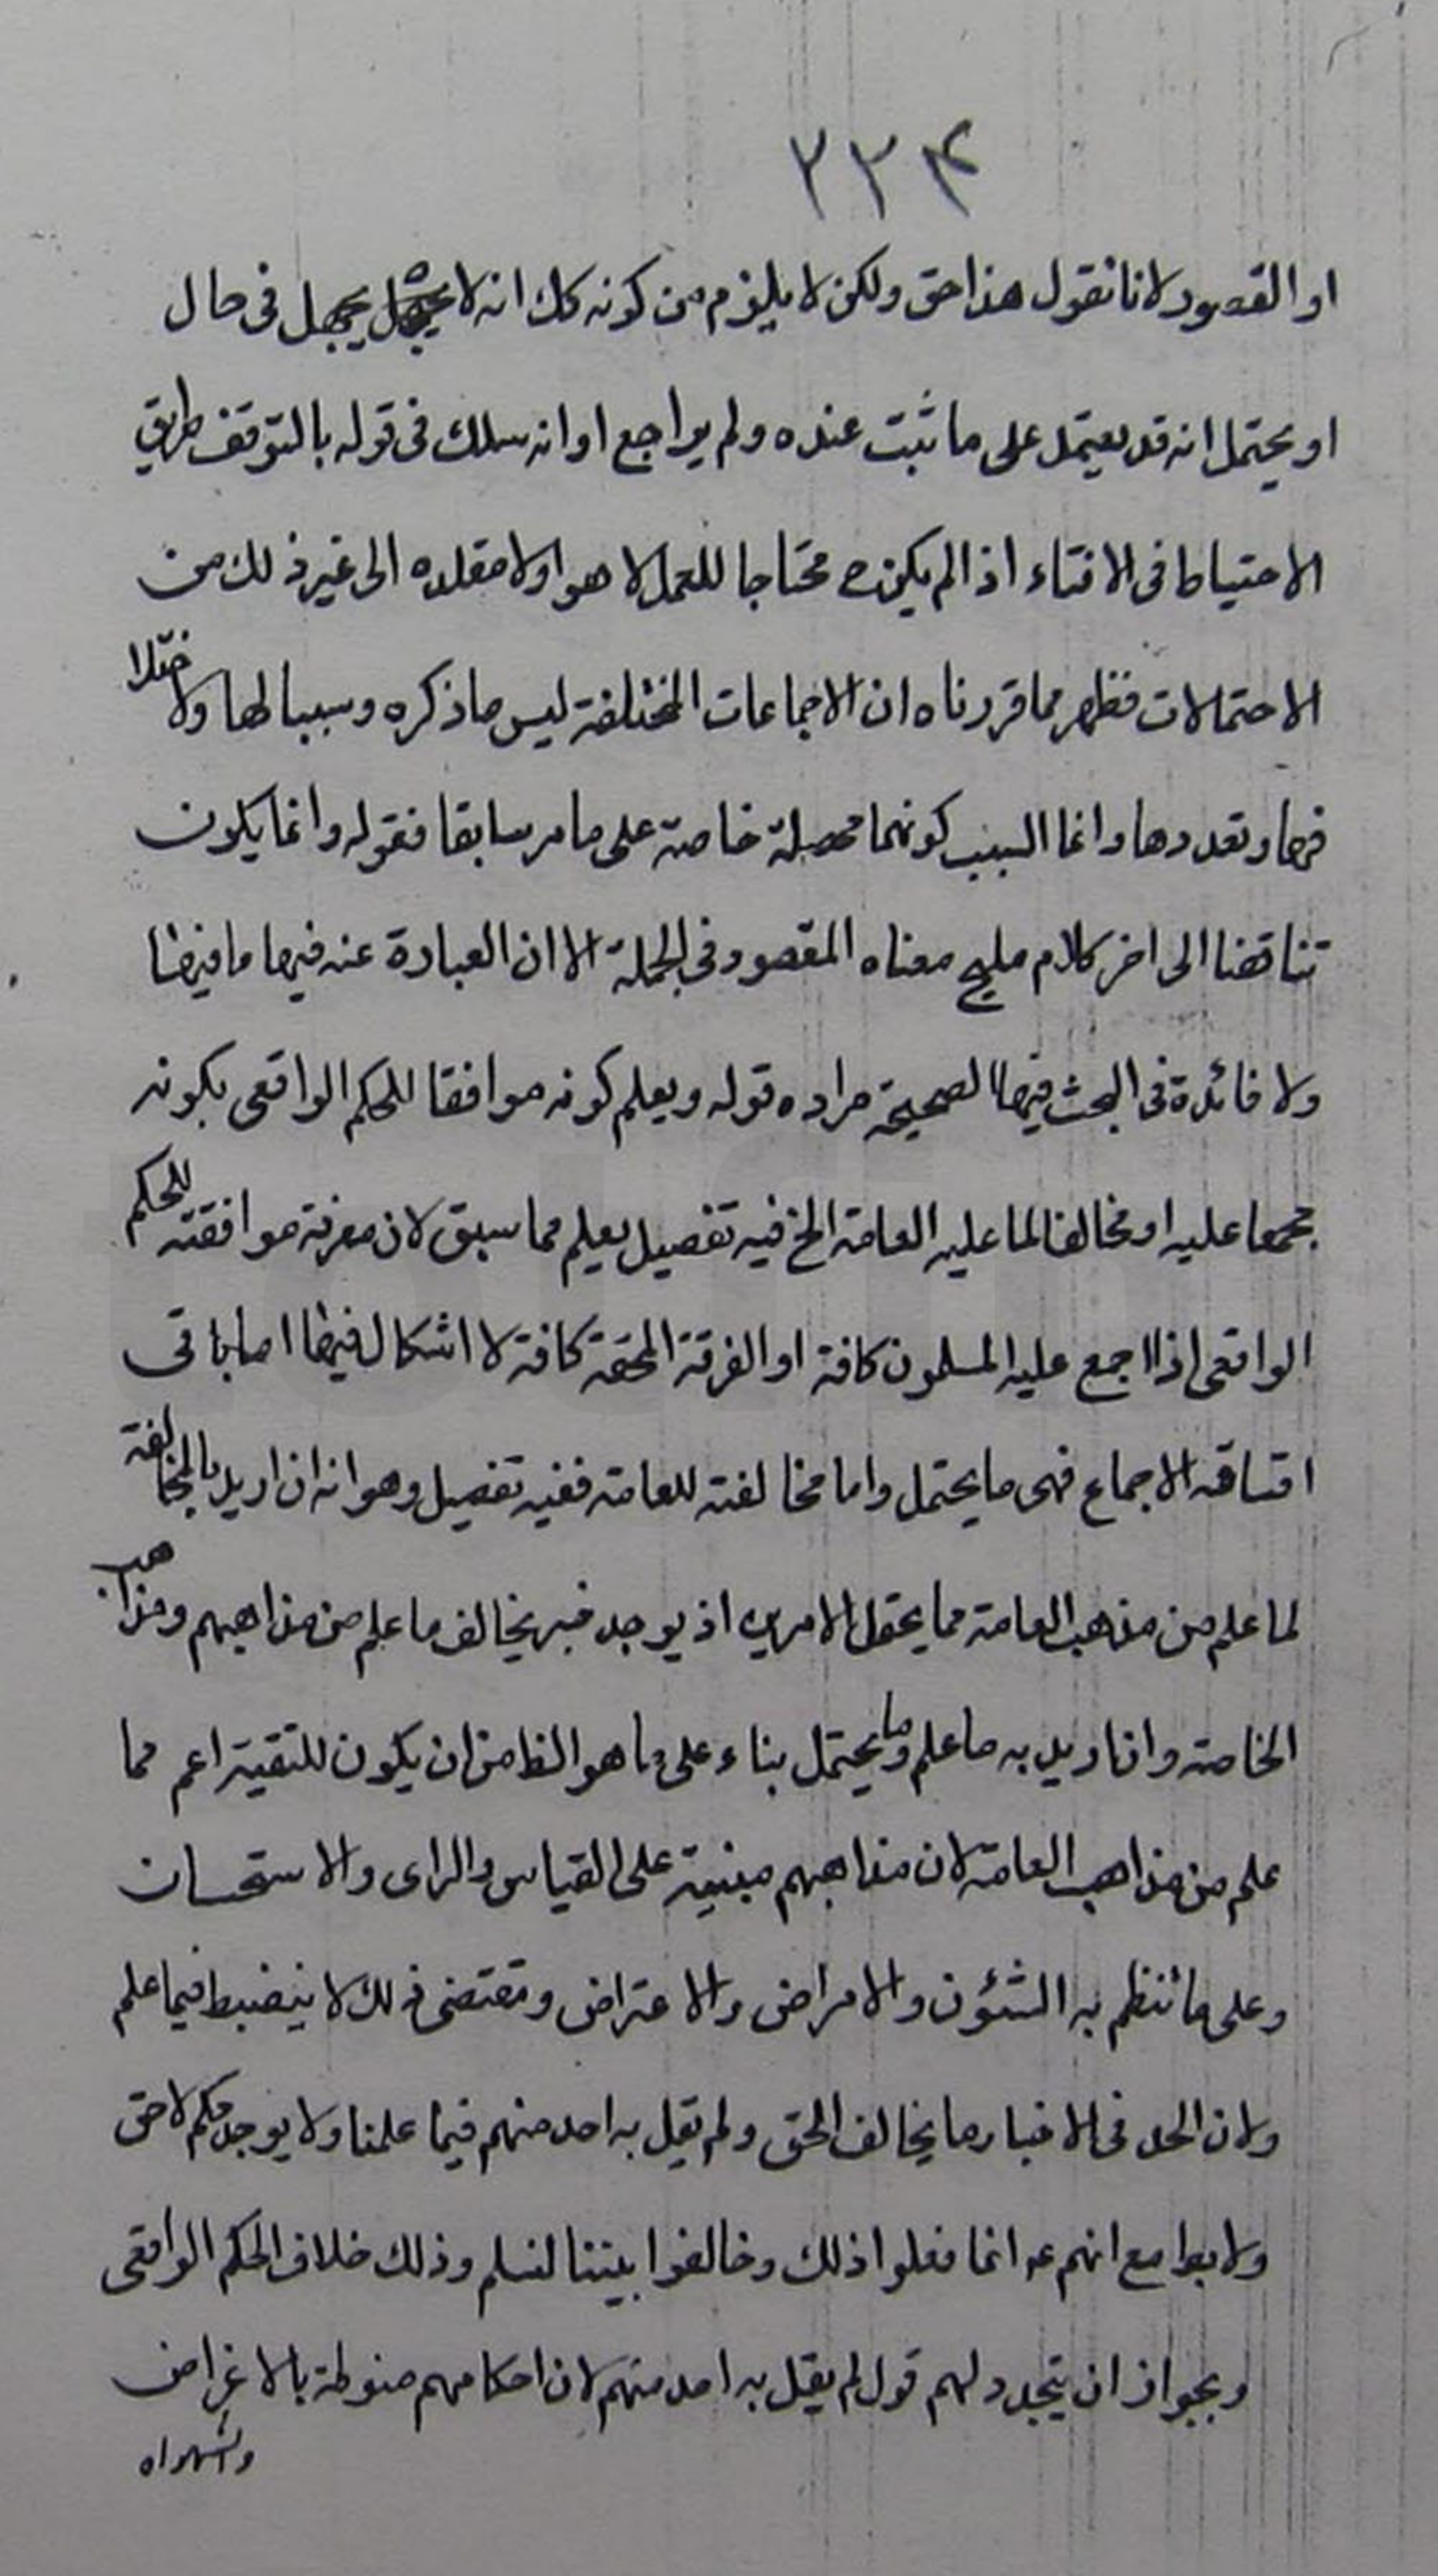 ٢٣٤
او القصور لانا نقول هذا حق ولكن لا يلزم من كونه كك انه لا يجهل في حال
او يحتمل انه قد يعتمد على ما ثبت عنده ولم يراجع او انه سلك في قوله بالتوقف طريق
الاحتياط في الافتاء اذا لم يكن ح محتاجا للعمل لا هو ولا مقلده الى غير ذلك من
الاحتمالات فظهر مما قررناه ان الاجماعات المختلفة ليس ما ذكره وسببا لها ولا ختلا
فها وتعددها وانما السبب كونها محصلة خاصة على ما مر سابقا فقوله وانما يكون
تناقضا الى اخر كلام مليح معناه المقصود في الجملة الا ان العبارة عنه فيها ما فيها
ولا فائدة في البحث فيها لصحة مراده قوله ويعلم كونه موافقا للحكم الواقعى بكونه
مجمعا عليه او مخالفا لما عليه العامة الخ فيه تفصيل يعلم مما سبق لان معرفة موافقته للحكم
الواقعى اذا اجمع عليه المسلمون كافة او الفرقة المحقة كافة لا اشكال فيها اما باقى
اقسام الاجماع فهى ما يحتمل واما مخالفته للعامة ففيه تفصيل وهو انه ان اريد بالمخالفة
لما علم من مذهب العامة مما يحتمل الامرين اذ يوجد خبر يخالف ما علم من مذاهبهم ومذاهب
الخاصة وان اريد به ما علم وما يحتمل بناء على ما هو الظ من ان يكون للتقية اعم مما
علم من مذاهب العامة لان مذاهبهم مبنية على القياس والراى والاستحسان
وعلى ما تنظم به الشئون والامراض والاعتراض ومقتضى ذلك لا ينضبط فيما علم
ولان الحد في الاخبار ما يخالف الحق ولم يقل به احد منهم فيما علمنا ولا يوجد حكم لا حق
ولا مع انهم عـ انما فعلوا ذلك وخالفوا بيننا لنسلم وذلك خلاف الحكم الواقعى
وبجواز ان يتجدد لهم قول لم يقل به احد منهم لان احكامهم منوطة بالاغراض